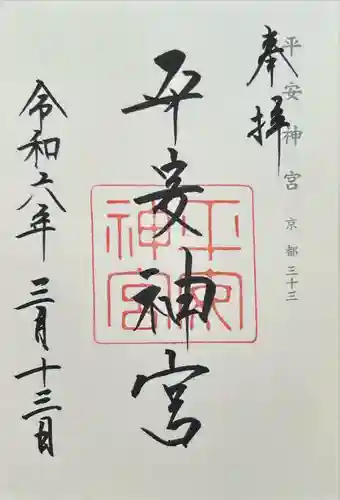 奉拝
平安神宮 京都三十三
平安神宮
平安神宮
令和六年 三月十三日